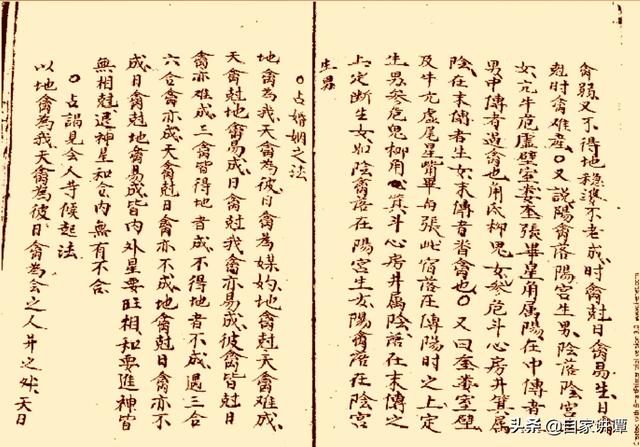 禽弱又不得地穩準不老成时禽尅日禽易生日禽
尅时禽难產〇又説陽禽落陽宮生男陰落陰宮
女亢牛危虚壁室婁奎張畢星角属陽在中傳者
男中傳者過禽也角氐柳鬼女參危斗心房井箕属
陰在末傳者生女末傳者皆禽也〇又曰奎婁室壁
及牛亢虚尾星觜畢向張此宿落在傳陽时之上定
生男參危鬼柳角箕斗心房井属陰落在末傳之
上定断生女如陰禽落在陽宮生女陽禽落在陰宮
生男
〇占婚姻之法
地禽為我天禽為彼日禽為媒妁地禽尅天禽难成
天禽尅地禽易成日禽尅我禽亦易成彼禽皆尅日
禽亦难成三禽皆得地者成不得地者不成遇三合
六合禽亦成天禽尅日禽亦不成地禽尅日禽亦不
成日禽尅地禽易成皆内外星要旺相和要進神皆
無相尅退神星和合内無有不合
〇占謁見会人等候起法
以地禽為我天禽為彼日禽為会之人井之 天日
头条 @自家讲谭